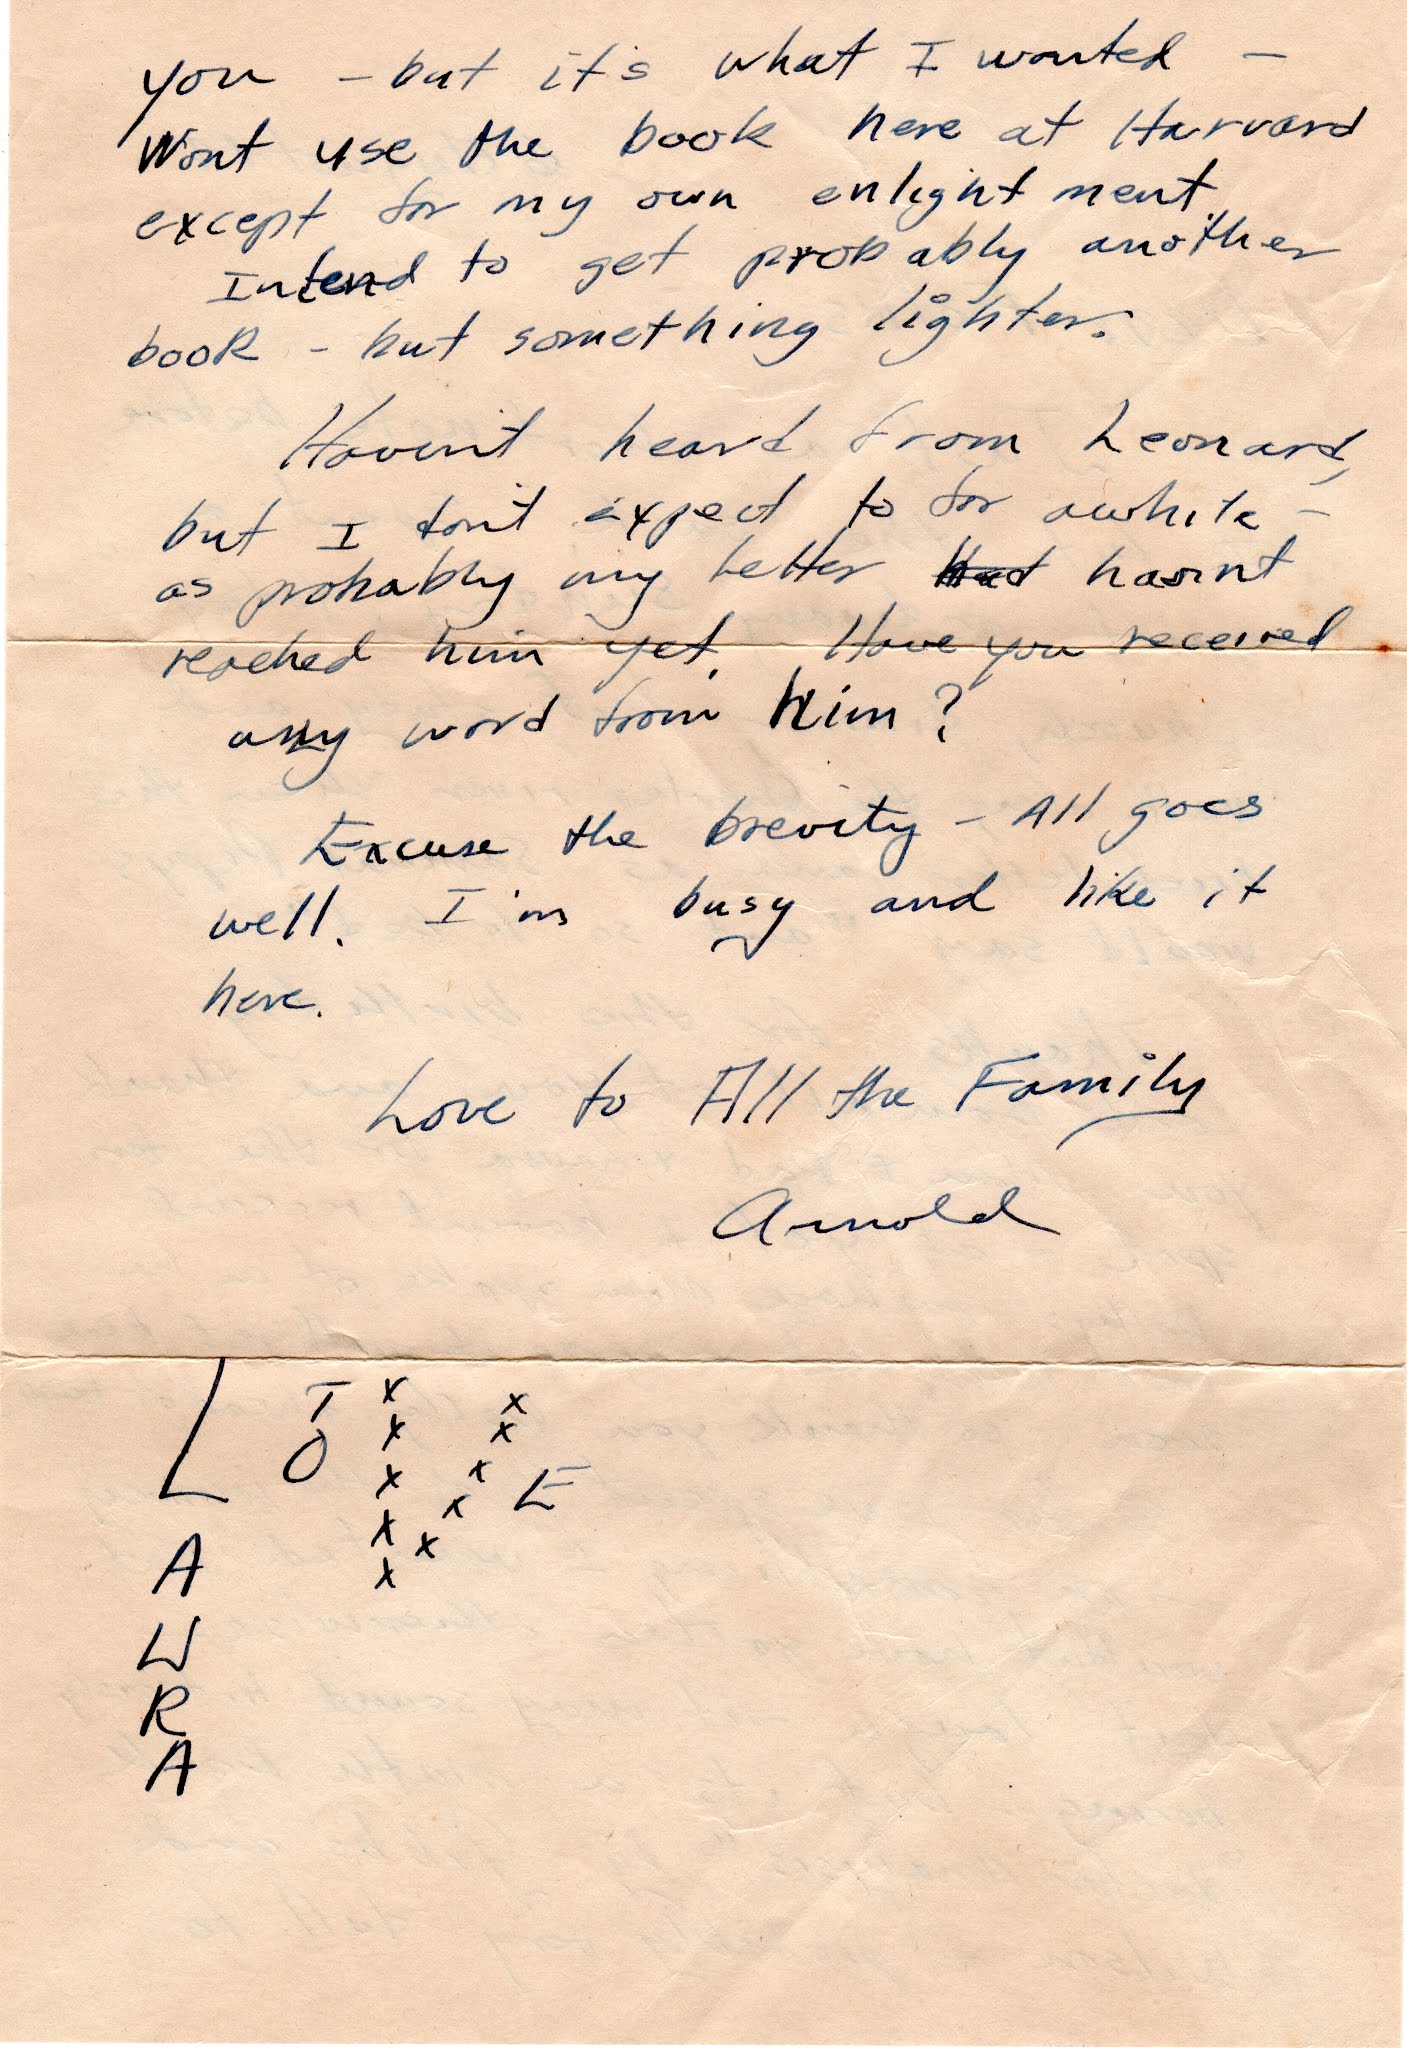 you - but it's what I wanted -
Wont use the book here at Harvard
except for my own enlightment
Intend to get probably another
book - but something lighter.
Haven't heard from Leonard,
but I don't expect to for awhile -
as probably my letter hasn't
reached him yet. Have you received
any word from him?
Excuse the brevity - All goes
well. I'm busy and like it
here.
Love to All the Family
Arnold
L TO x x x x x x x x x x E
A
W
R
A